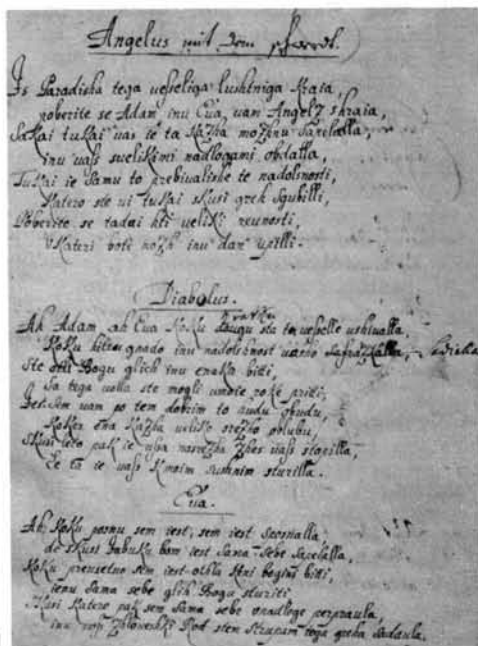 Angelus mit dem schwerdt.
Is Paradisha tega vesseliga lushtniga kraia,
poberite se Adam inu Eua, vam Angelz shraia,
Sakai tukai vas ie ta kazha mozhnu sapelalla,
inu vass suelikimi nadlogami obdalla,
Tukai ie samu to prebiualishe te nadolsnosti,
Katero ste vi tukai skusi greh sgubilli,
Poberite se tadai hti veliki reunosti,
V kateri bote nozh inu dan vpilli.
Diabolus.
Ah Adam, ah Eua koku kratku sta to veselle vshiualla,
Koku hitro gnado inu nadolshnost
Ste otli Bogu glich inu enaku biti,
Sa tega volla ste mogli vmoie roke priti;
Jest sim vam po tem dobrim to hudu
Kaker ena kazha veliko srezho oblubu,
Skusi leto pak ie nasrezha zhes vass storilla,
Ke ta ie vass kmoim sushnim sturilla.
Eua.
Ah koku posnu sem iest, sem iest sposnalla,
de skusi Jabuku bom iest sama sebe sapelalla,
Koku preusetno sem iest otela biti,
ienu sama sebe glih Bogu sturiti
Skusi katero pak sem sama sebe vnadloge perpraula,
inu zhloueshki Rod stem strupam tega greha sadaula.